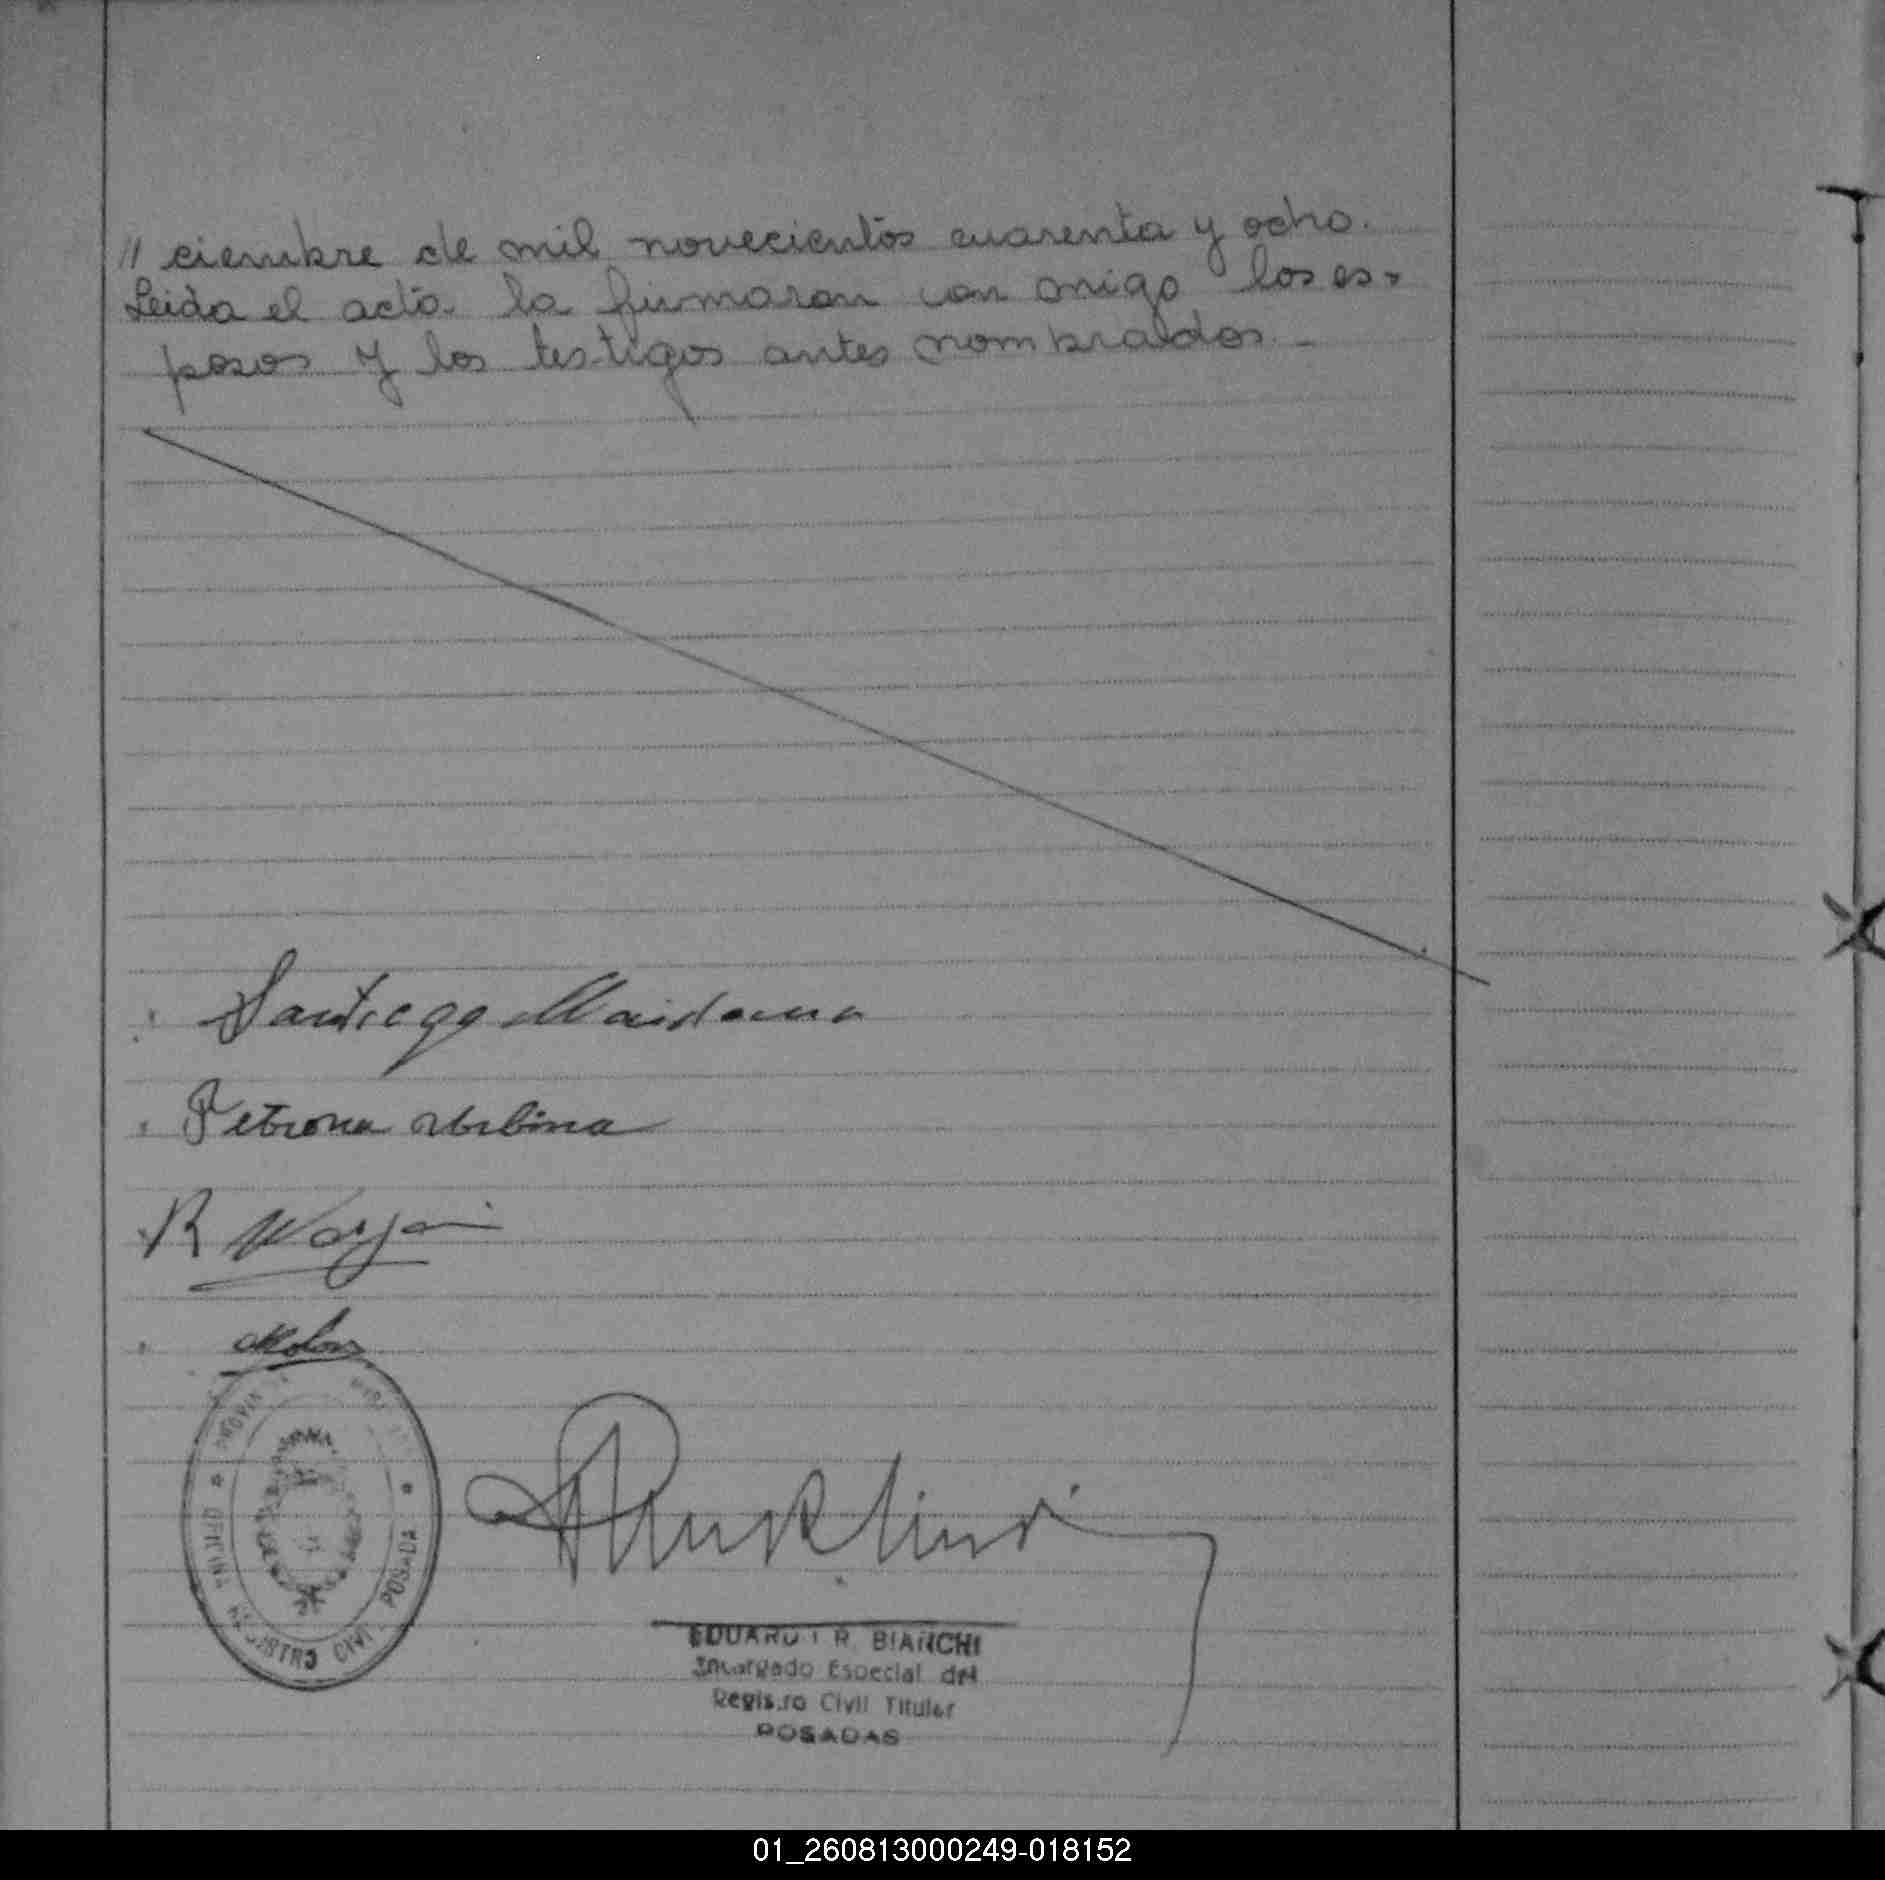 // ciembre de mil novecientos cuarenta y ocho.
Leida el acta la firmaron con migo los es-
posos y los testigos antes nombrados. -
Santiago Maidana
Petrona Urbina
R
OFICINA REGISTRO CIVIL POSADA
EDUARDO R. BIANCHI
Encargado Especial del
Registro Civil Titular
POSADAS
01_260813000249-018152